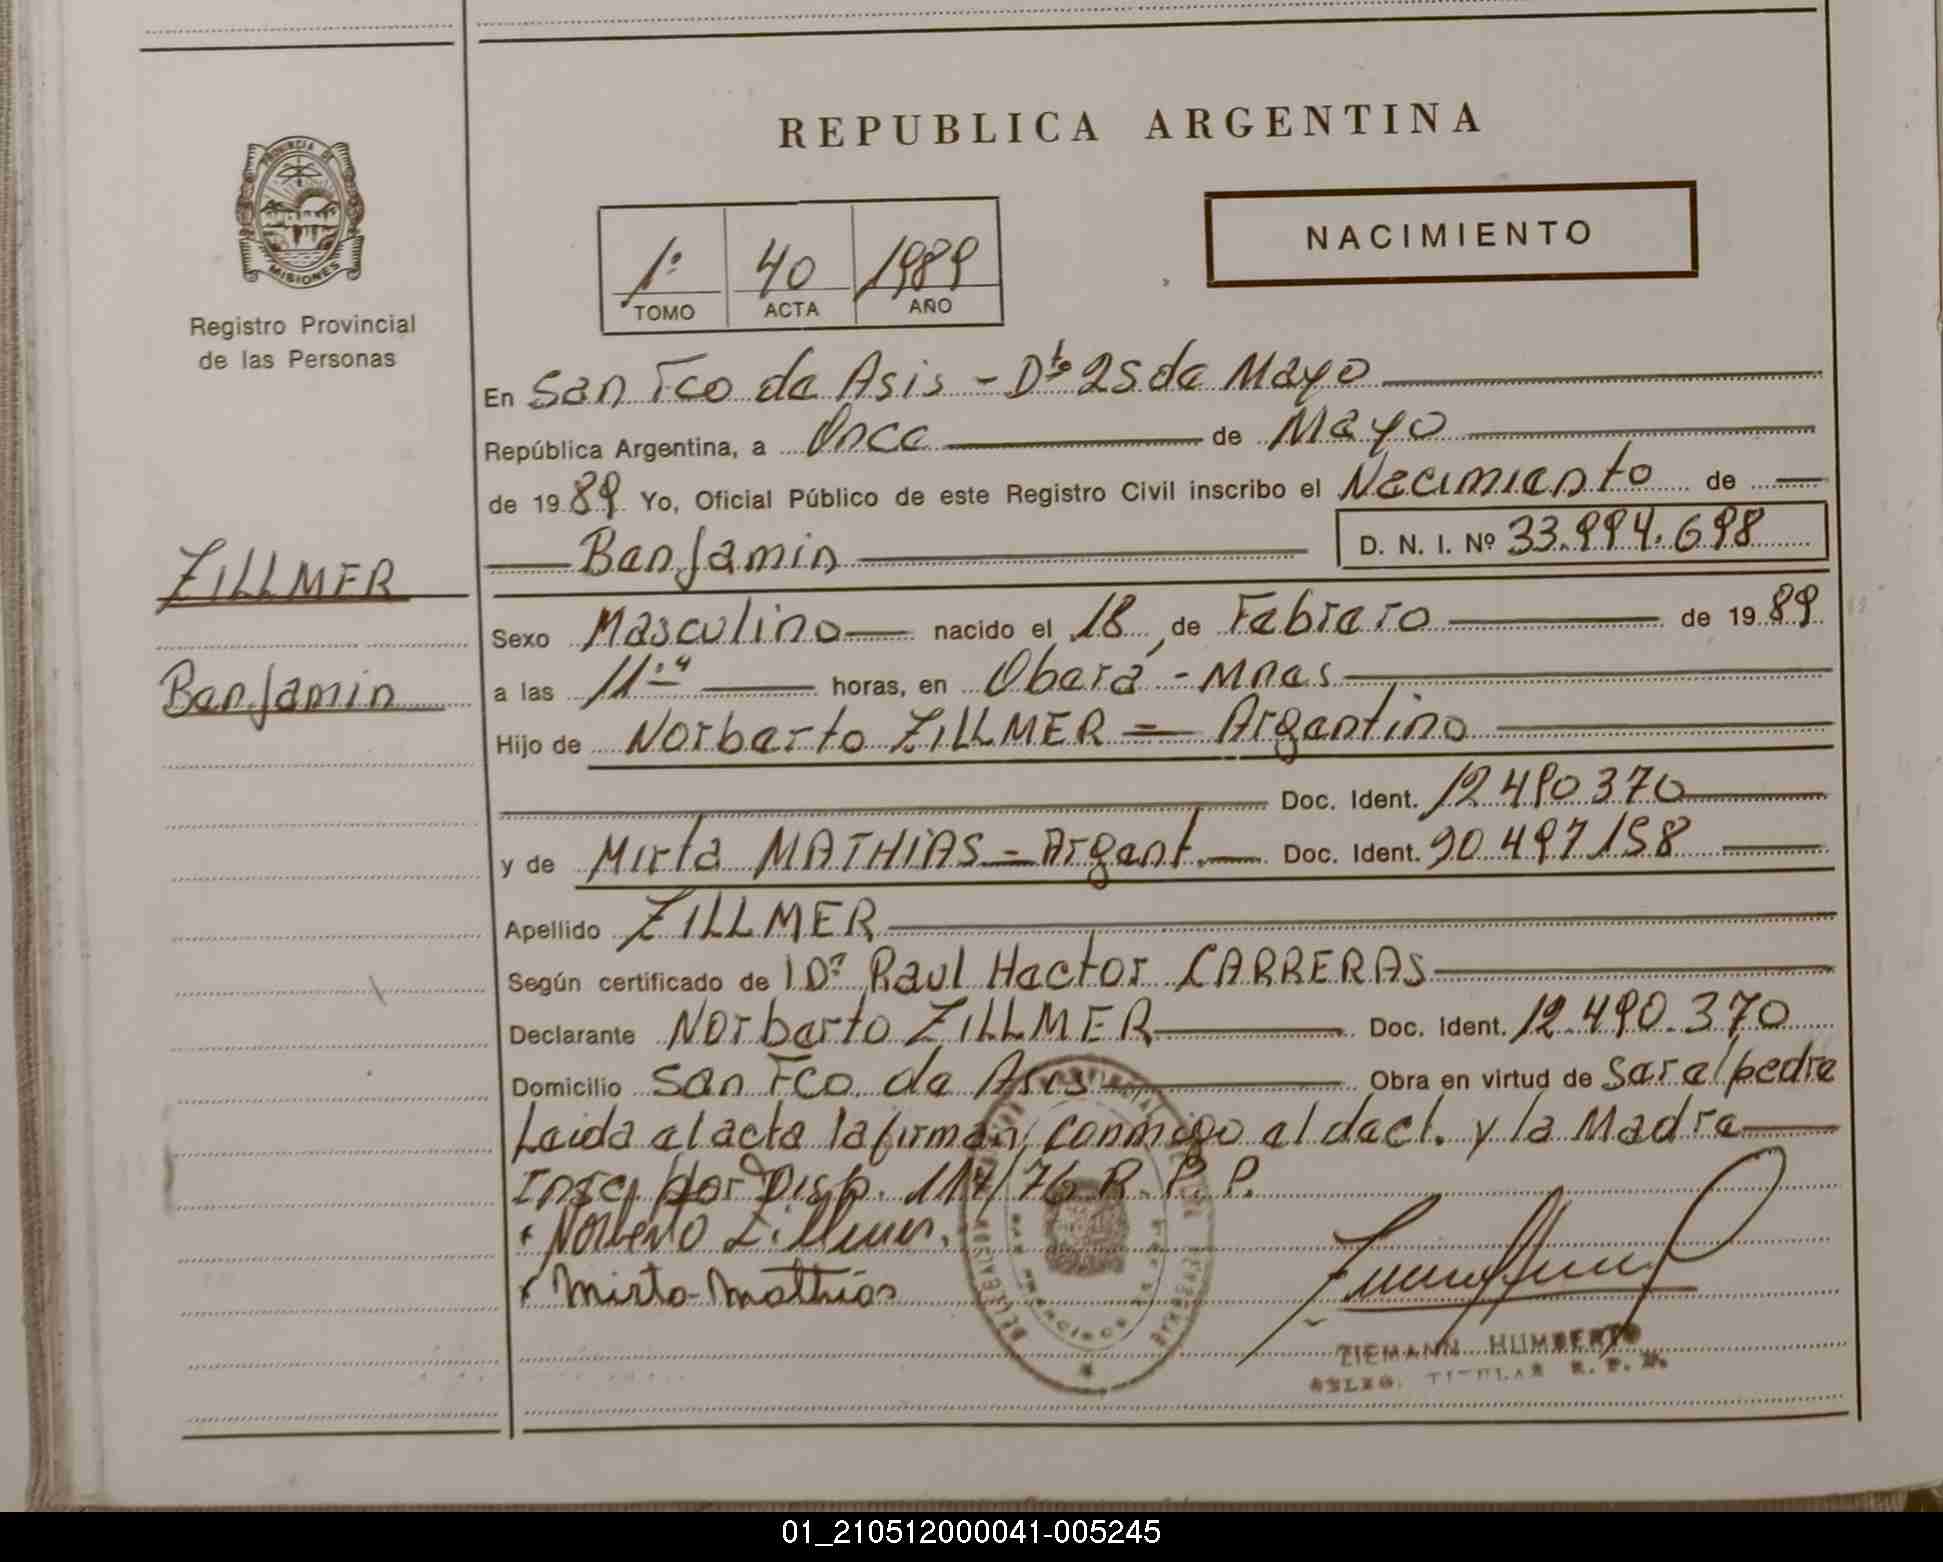 REPUBLICA ARGENTINA
PROVINCIA DE
MISIONES
Registro Provincial
de las Personas
NACIMIENTO
1º 40 1989
TOMO ACTA AÑO
En San Fco de Asis - Dto 25 de Mayo
República Argentina, a Once de Mayo
de 1989 Yo, Oficial Público de este Registro Civil inscribo el Nacimiento de
Benjamin D. N. I. Nº 33.994.698
ZILLMER
Benjamin
Sexo Masculino nacido el 18 de Febrero de 1989
a las 11 horas, en Oberá - Mnes
Hijo de Norberto ZILLMER = Argentino
Doc. Ident. 12 490 370
y de Mirta MATHIAS = Argent. Doc. Ident. 90 497 158
Apellido ZILLMER
Según certificado de Dr Raul Hector CARRERAS
Declarante Norberto ZILLMER Doc. Ident. 12.490.370
Domicilio San Fco. de Asis Obra en virtud de ser el pedre
Leida el acta la firman, conmigo el decl. y la Madre
Insc. por Disp. 114/76 R. P. P.
Norberto Zillmer.
Mirta Mathias
ZIEMANN HUMBERTO
DELEG. TITULAR R. P. P.
01_210512000041-005245